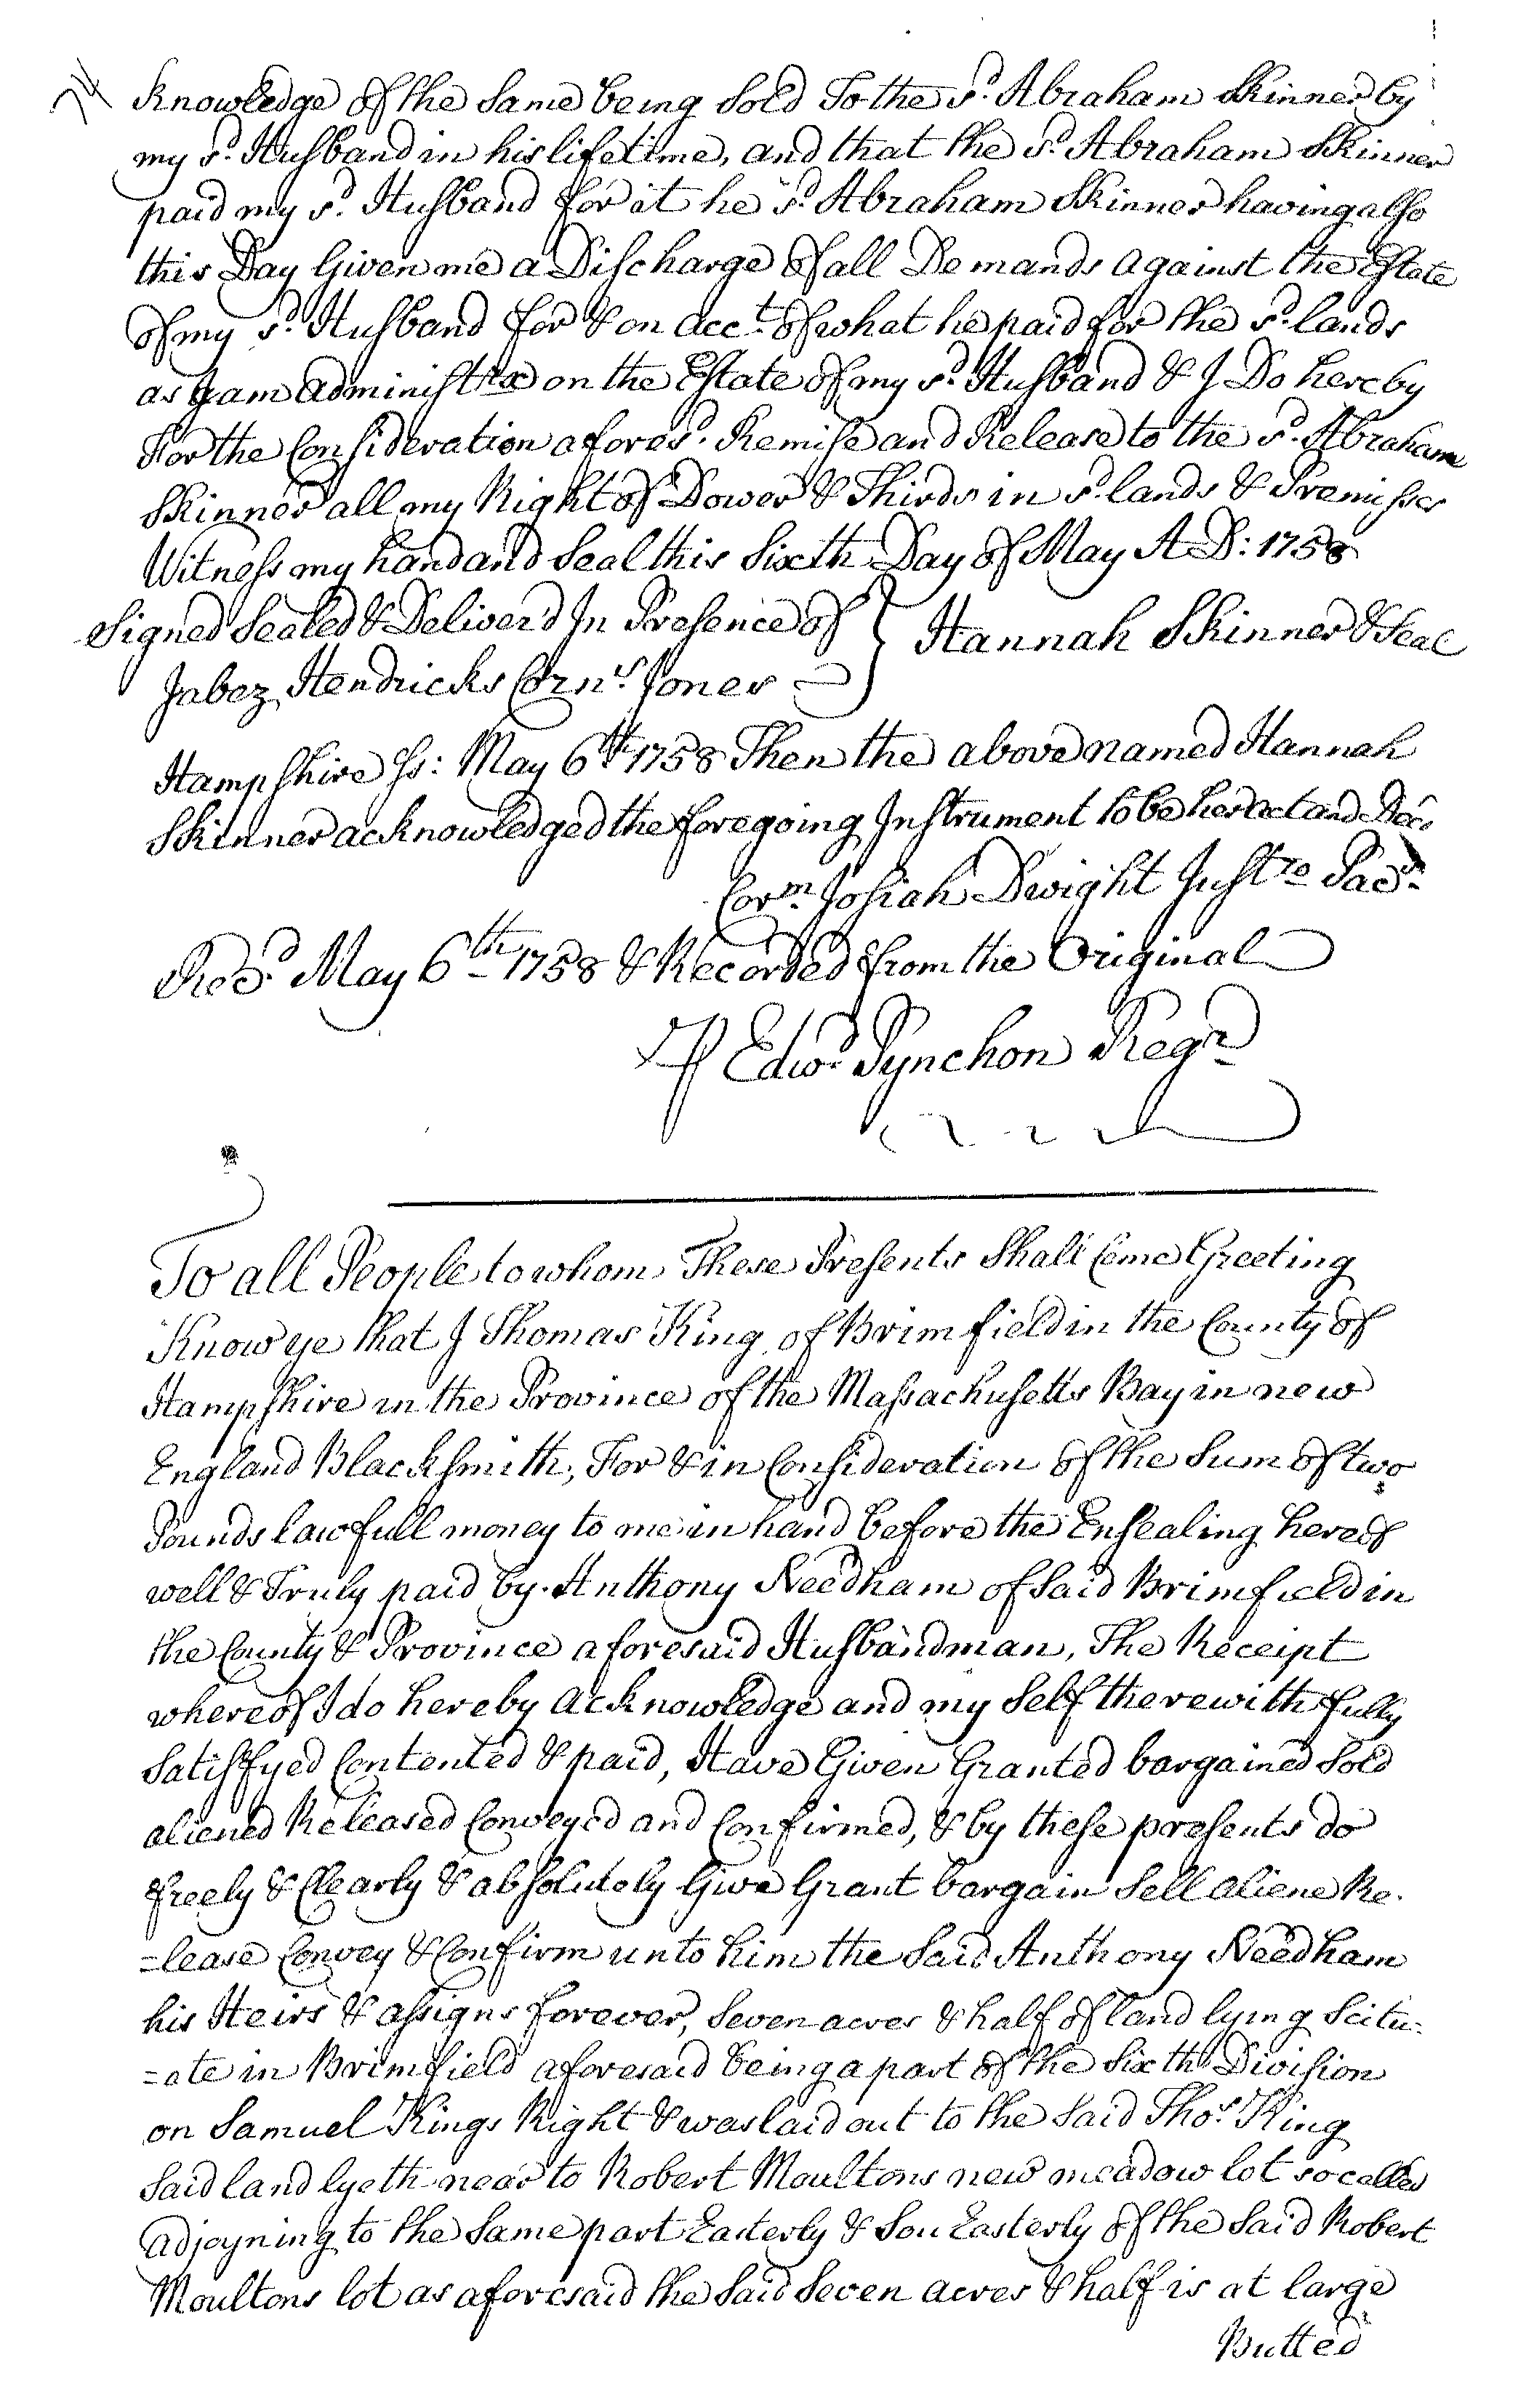 74
Knowledge of the Same being Sold To the sd. Abraham Skinner by
my sd. Husband in his lifetime, and that the sd. Abraham Skinner
paid my sd. Husband for it he sd. Abraham Skinner having also
this Day Given me a Discharge of all Demands against the Estate
of my sd. Husband for & on acct. of what he paid for the sd. lands
as I am administrx on the Estate of my sd. Husband & I Do hereby
For the Consideration aforesd. Remise and Release to the sd. Abraham
Skinner all my Right of Dower & Thirds in sd. lands & Premisses
Witness my hand and Seal this Sixth Day of May A D: 1758
Signed Sealed & Deliverd In Presence of } Hannah Skinner & Seal
Jabez Hendricks Corns. Jones
Hampshire ss: May 6th 1758 Then the above named Hannah
Skinner acknowledged the foregoing Instrument to be her act and
Corm. Josiah Dwight Justce Pacs.
Recd. May 6th 1758 & Recorded from the Original
P Edwd. Pynchon Regr
To all People to whom These Presents Shall Come Greeting
Know ye that I Thomas King of Brimfield in the County of
Hampshire in the Province of the Massachusetts Bay in new
England Blacksmith; For & in Consideration of the Sum of two
Pounds lawfull money to me in hand before the Ensealing hereof
well & Truly paid by Anthony Needham of Said Brimfield in
the County & Province aforesaid Husbandman, The Receipt
whereof I do hereby acknowledge and my Self therewith fully
Satisfyed Contented & paid, Have Given Granted bargained Sold
aliened Released Conveyed and Confirmed, & by these presents do
freely & Clearly & absolutely Give Grant bargain Sell aliene Re-
=lease Convey & Confirm unto him the Said Anthony Needham
his Heirs & assigns forever, Seven acres & half of land lying Scitu-
=ate in Brimfield aforesaid being a part of the Sixth Division
on Samuel Kings Right & was laid out to the Said Thos. King
Said land lyeth near to Robert Moultons new meadow lot so called
adjoyning to the Same part Easterly & Sou Easterly of the Said Robert
Moultons lot as aforesaid the Said Seven acres & half is at large
Butted